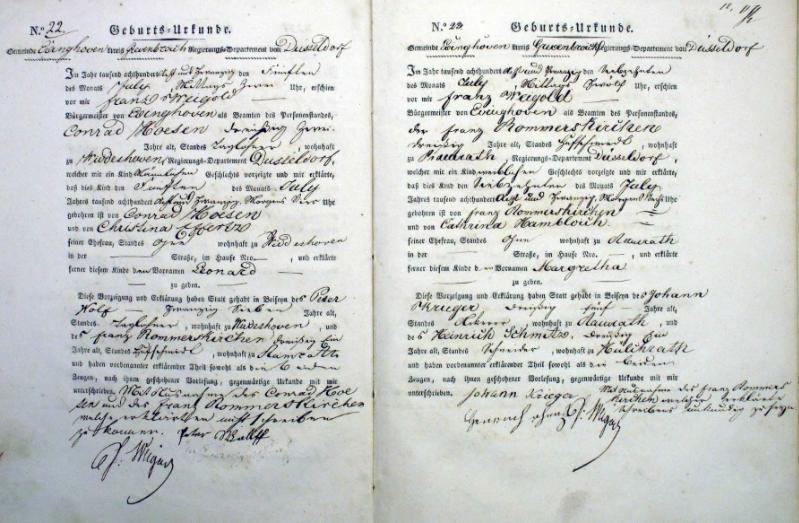 N.º 22 Geburts-Urkunde.
Gemeinde Evinghoven Kreis Grevenbroich Regierungs-Departement von Düsseldorf
Im Jahr tausend achthundert acht und zwanzig den Fünften
des Monats July Mittags Zwei Uhr, erschien
vor mir Franz Weigold
Bürgermeister von Evinghoven als Beamten des Personenstandes,
Conrad Hoesen dreißig zwei
Jahre alt, Standes Taglohner, wohnhaft
zu Widdeshoven, Regierungs-Departement Düsseldorf,
welcher mir ein Kind Männlichen Geschlechts vorzeigte und mir erklärte,
daß dies Kind den Fünften des Monats July
Jahres tausend achthundert acht und zwanzig Morgens Uhr
gebohren ist von Conrad Hoesen
und von Christina
seiner Ehefrau, Standes Ohne wohnhaft zu Widdeshoven
in der Straße, im Hause Nro. und erklärte
ferner diesem Kinde den Vornamen Leonard
zu geben.
Diese Vorzeigung und Erklärung haben Statt gehabt in Beiseyn des Peter
Wolf zwanzig Sieben Jahre alt,
Standes Taglohner, wohnhaft zu Widdeshoven, und
des Franz Rommerskirchen dreißig Ein
Jahre alt, Standes Hufschmidt, wohnhaft zu Ramrath
und haben vorbenannter erklärender Theil sowohl als die beiden
Zeugen, nach ihnen geschehener Vorlesung, gegenwärtige Urkunde mit mir
unterschrieben. Mit Ausnahme des Conrad Hoe
sen und des Franz Rommerskirchen
welche erklärten nicht schreiben
zu können. Peter Wolff
N.º 23 Geburts-Urkunde.
Gemeinde Evinghoven Kreis Grevenbroich Regierungs-Departement von Düsseldorf
Im Jahr tausend achthundert acht und zwanzig den Siebzehnten
des Monats July Mittags Zwölf Uhr, erschien
vor mir Franz Weigold
Bürgermeister von Evinghoven als Beamten des Personenstandes,
der Franz Rommerskirchen
dreißig Jahre alt, Standes Hufschmidt, wohnhaft
zu Ramrath, Regierungs-Departement Düsseldorf,
welcher mir ein Kind weiblichen Geschlechts vorzeigte und mir erklärte,
daß dies Kind den Siebzehnten des Monats July
Jahres tausend achthundert Acht und zwanzig, Morgens Uhr
gebohren ist von Franz Rommerskirchen
und von Cathrina Hambloch
seiner Ehefrau, Standes Ohne wohnhaft zu Ramrath
in der Straße, im Hause Nro. und erklärte
ferner diesem Kinde den Vornamen Margretha
zu geben.
Diese Vorzeigung und Erklärung haben Statt gehabt in Beiseyn des Johann
Krueger dreißig fünf Jahre alt,
Standes Ackerer, wohnhaft zu Ramrath, und
des Heinrich Schmitz, dreißig Ein
Jahre alt, Standes Schneider, wohnhaft zu Hülchrath
und haben vorbenannter erklärender Theil sowohl als die beiden
Zeugen, nach ihnen geschehener Vorlesung, gegenwärtige Urkunde mit mir
unterschrieben. Johann Mit Ausnahme des Franz Rommers
kirchen welcher erklärte
Schreibens unkundig zu seyn